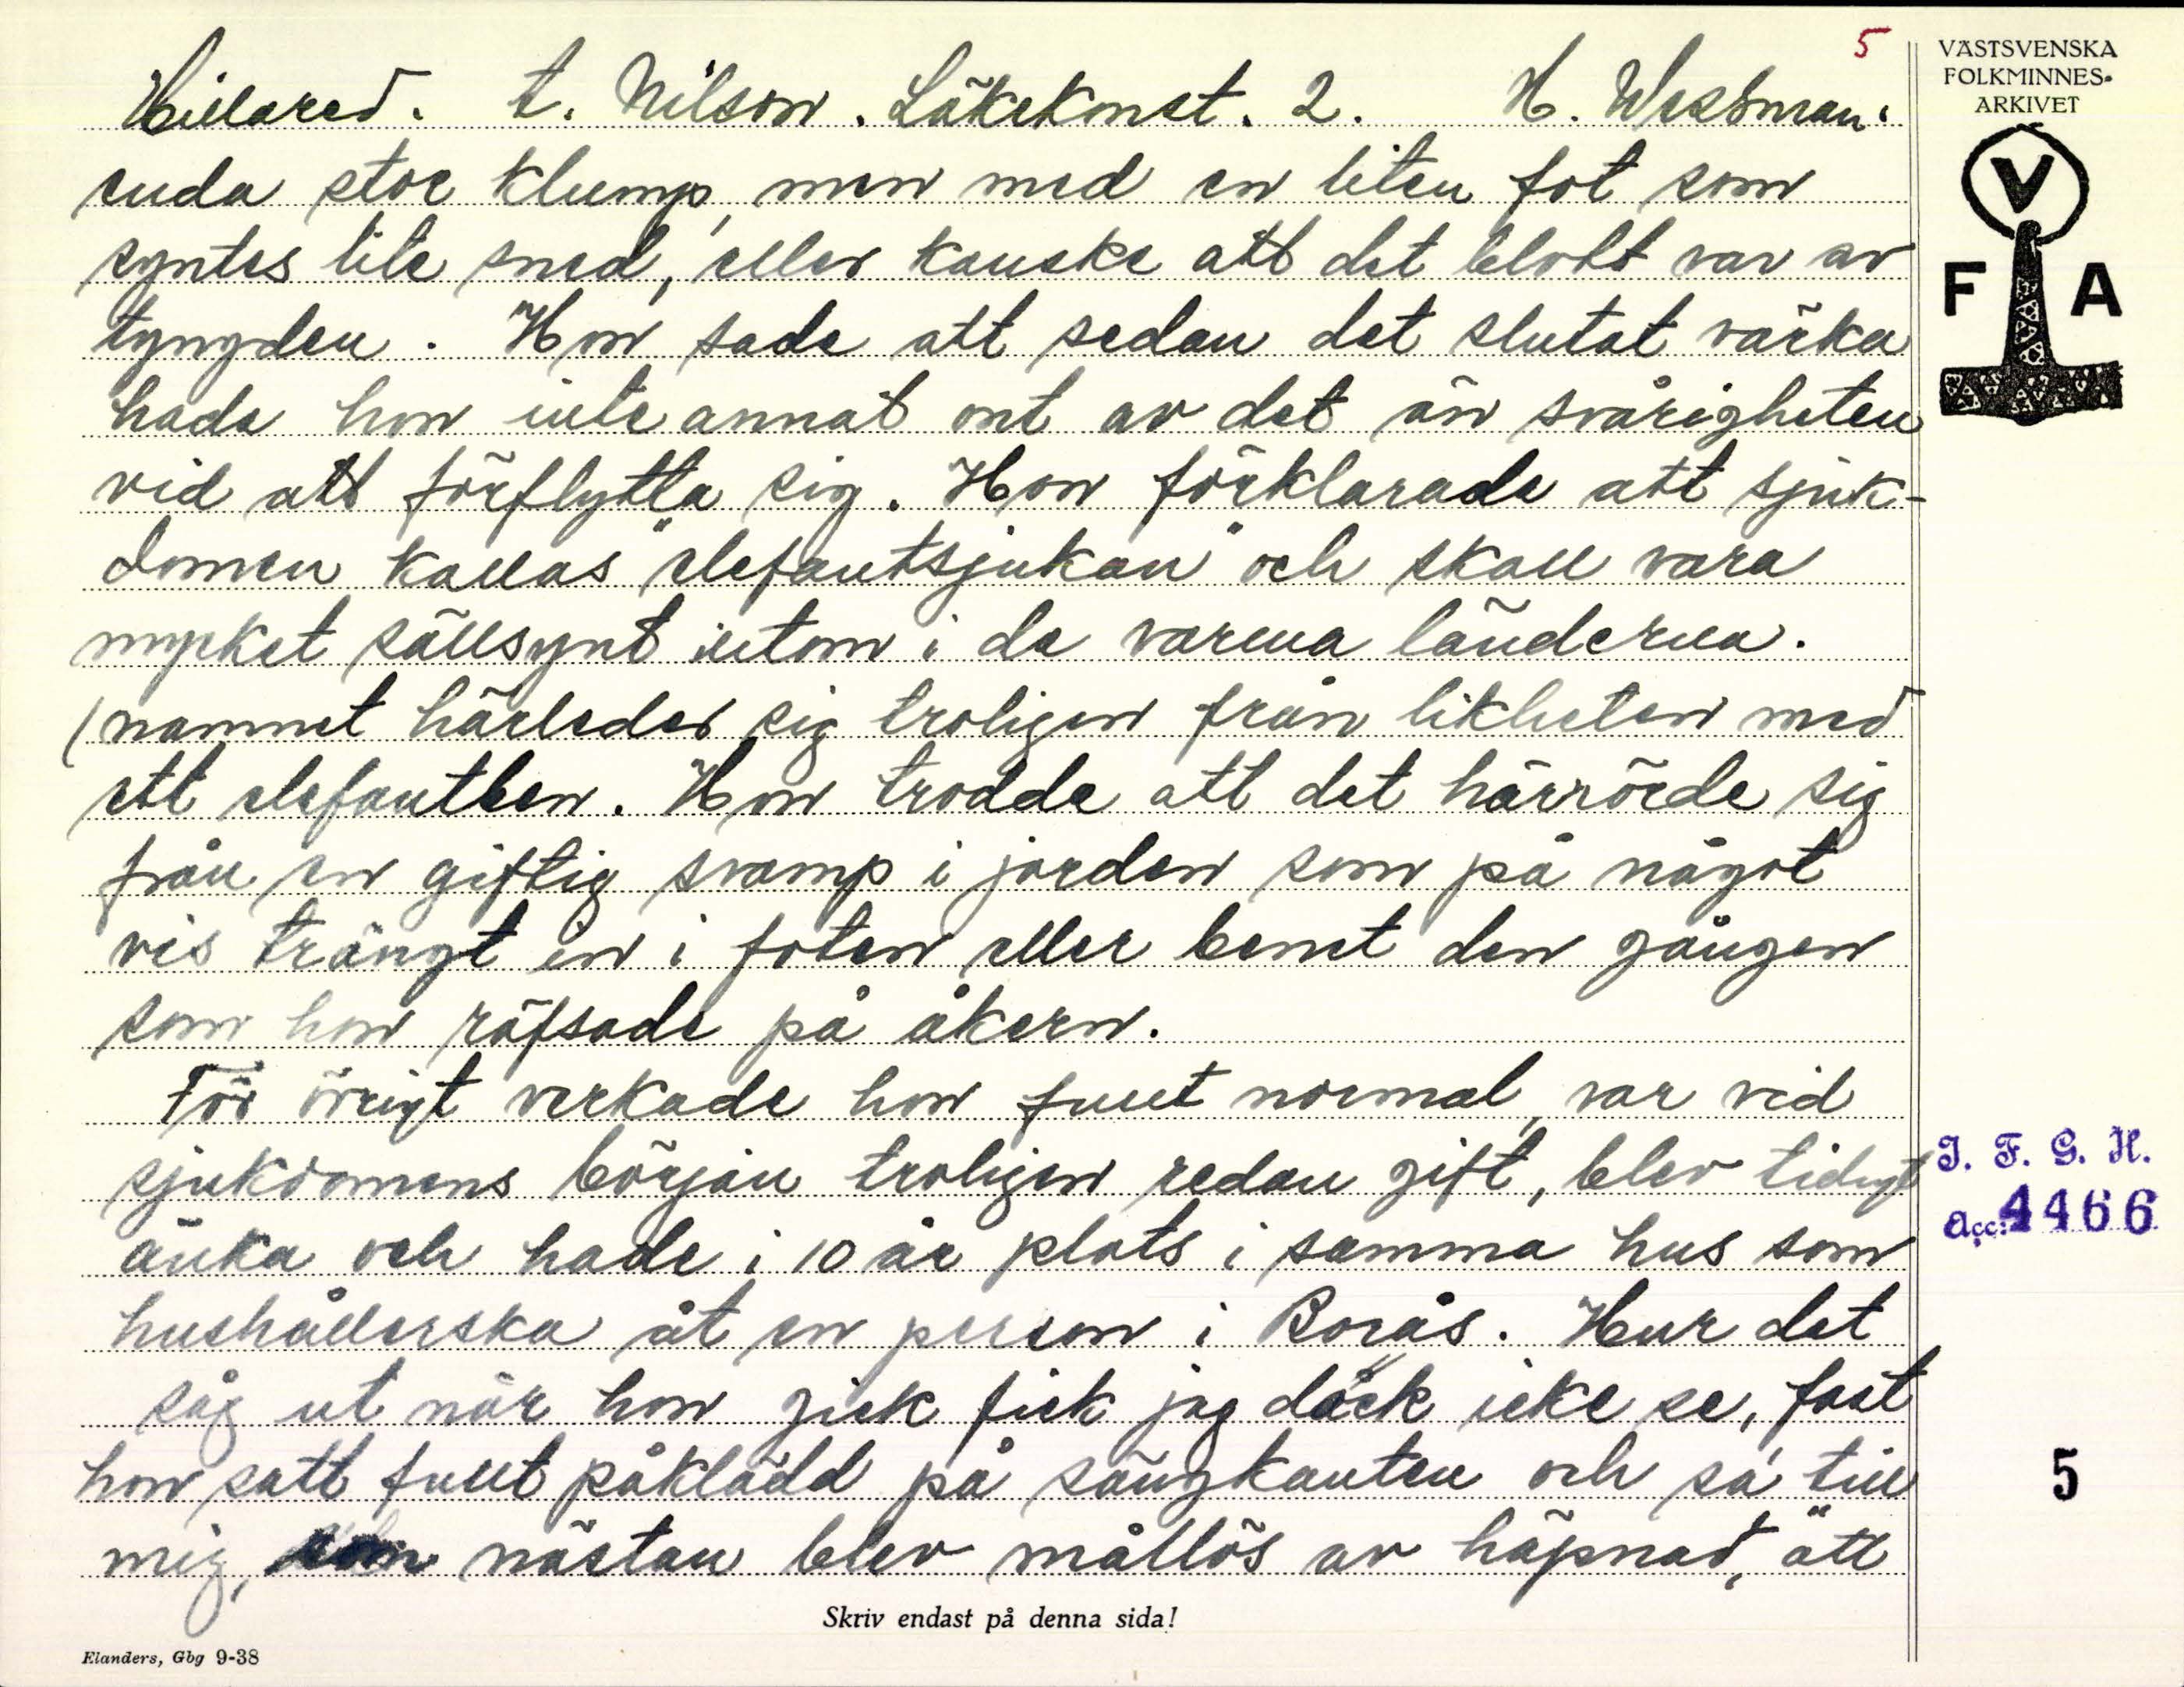 5
Hillared. t. Nilson. Läkekonst. 2. H. Wessman.
enda stor klump, men med en liten fot som
syntes lite sned, eller kanske att det blott var av
tyngden. Hon sade att sedan det slutat värka
hade hon inte annat ont av det än svårigheten
vid att förflytta sig. Hon förklarade att sjuk-
domen kallas "elefantsjukan" och skall vara
mycket sällsynt utom i de varma länderna.
(namnet härleder sig troligen från likheten med
ett elefantben. Hon trodde att det härrörde sig
från en giftig svamp i jorden som på något
vis trängt in i foten eller benet den gången
som hon räfsade på åkern.
För övrigt verkade hon fullt normal, var vid
sjukdomens början troligen redan gift, blev tidigt
änka och hade i 10 år plats i samma hus som
hushållerska åt en person i Borås. Hur det
såg ut när hon gick fick jag dock icke se, fast
hon satt fullt påklädd på sängkanten och sa' till
mig, som nästan blev mållös av häpnad, att
Skriv endast på denna sida!
Elanders, Gbg 9-38
VÄSTSVENSKA
FOLKMINNES-
ARKIVET
V
F A
I. F. G. H.
Acc: 4466
5